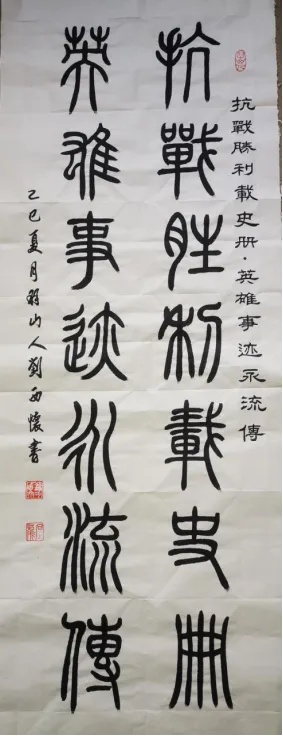 抗戰勝利載史册·英雄事迹永流傳
抗戰胜利載史册
英雄事迹永流傳
乙巳夏月 山人劉西懷書